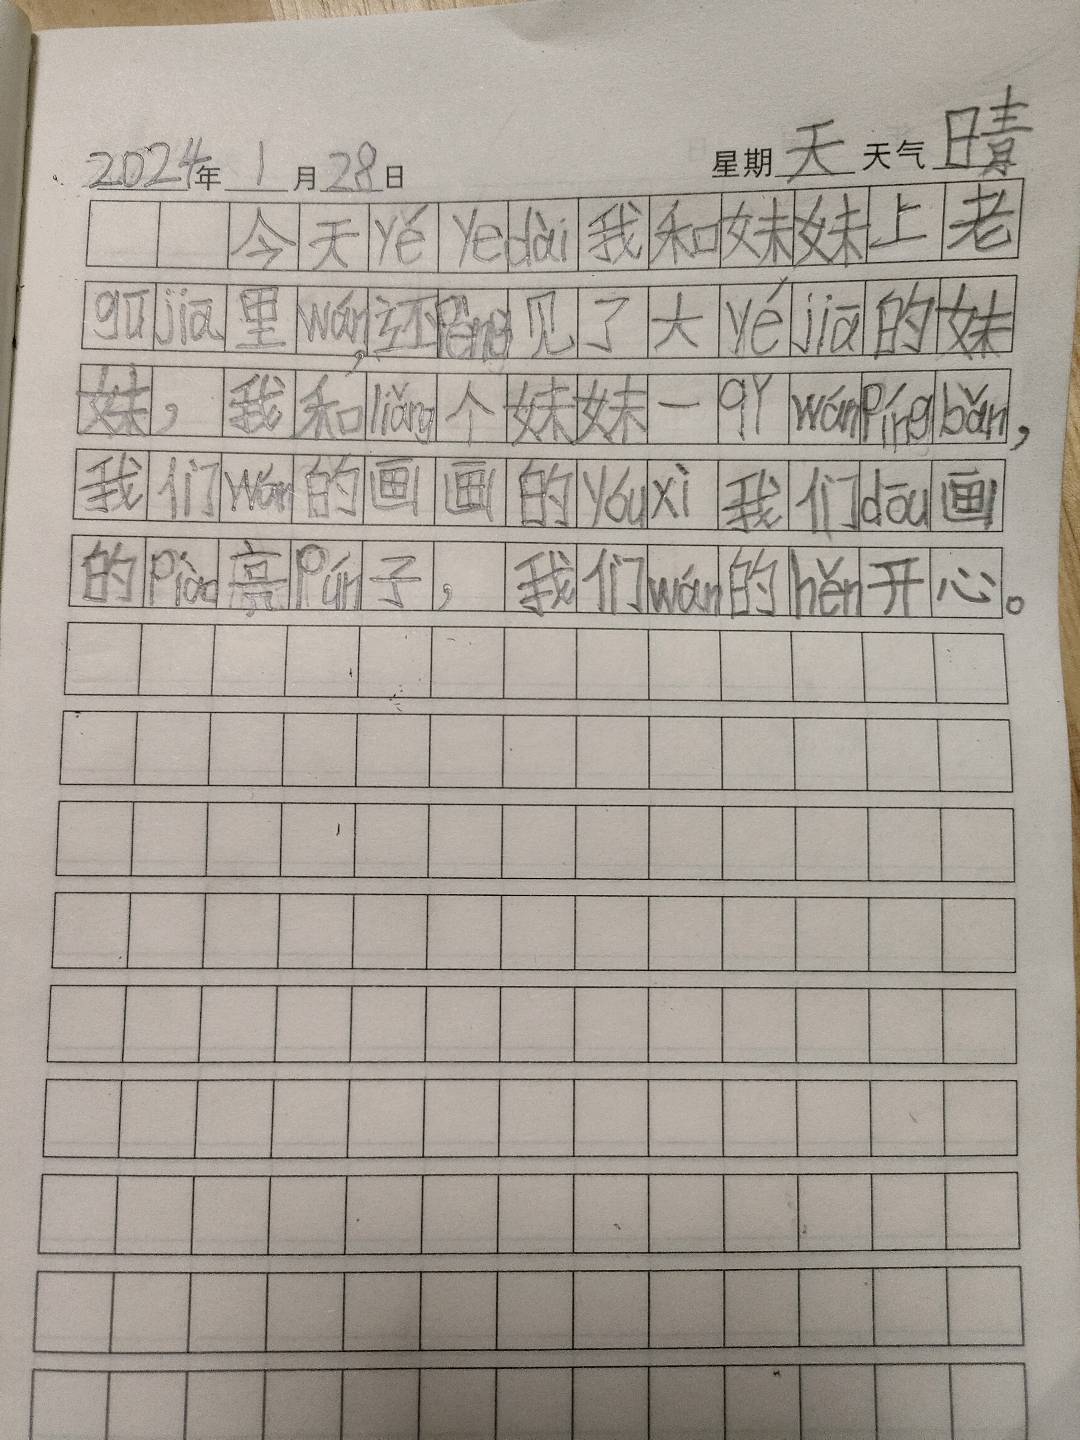 2024年1月28日 星期天 天气晴
今天yé ye dài我和妹妹上老
gū jiā里wán，还pèng见了大yé jiā的妹
妹，我和liǎng个妹妹一qǐ wán píng bǎn，
我们wán的画画的yóu xì我们dōu画
的piào亮qún子，我们wán的hěn开心。